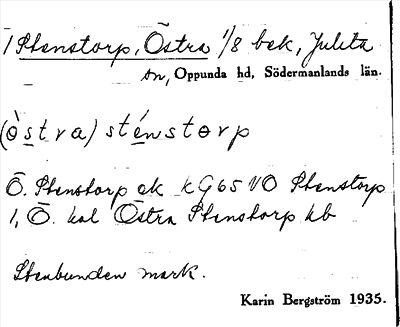 1 Stenstorp, Östra 1/8 bek, Juleta
sn, Oppunda hd, Södermanlands län.
(ö̀stra) sténstorp
Ö. Stenstorp ek kG65 VO Stenstorp
1, Ö. kal Östra Stenstorp hb
Stenbunden mark.
Karin Bergström 1935.